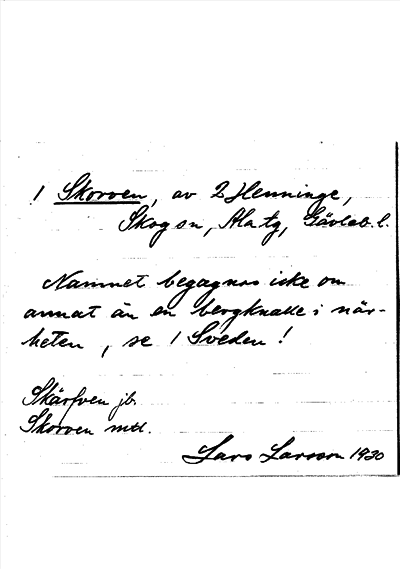 1 Skorven, av 2 Henninge,
Skog sn, Ala tg, Gävleb. l.
Namnet begagnas icke om
annat än en bergknalle i när-
heten, se 1 Sveden!
Skärfven jb.
Skorven mtl.
Lars Larsson 1930